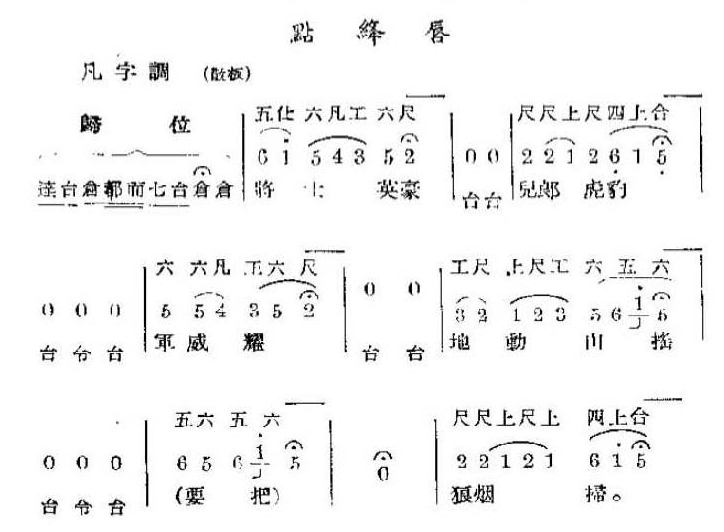 點絳唇
凡字調 (散板)
五仩 六凡工 六尺 尺尺上尺四上合
歸位 6 1 5 4 3 5 2 0 0 2 2 1 2 6 1 5
達台倉都而七台倉倉 將士英豪 台台 兒郎虎豹
六 六凡 工六 尺 工尺 上尺工 六 五 六
0 0 0 5 5 4 3 5 2 0 0 3 2 1 2 3 5 6 1 5
台令台 軍威耀 台台 地動山搖
五六 五 六 尺尺上尺上 四上合
0 0 0 6 5 6 1 5 0 2 2 1 2 1 6 1 5
台令台 (要把) 狼烟掃。